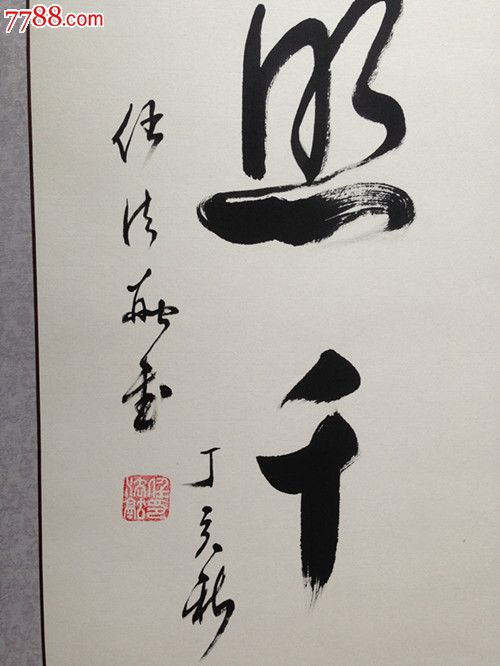 7788.com
照千
丁亥秋
任法融書